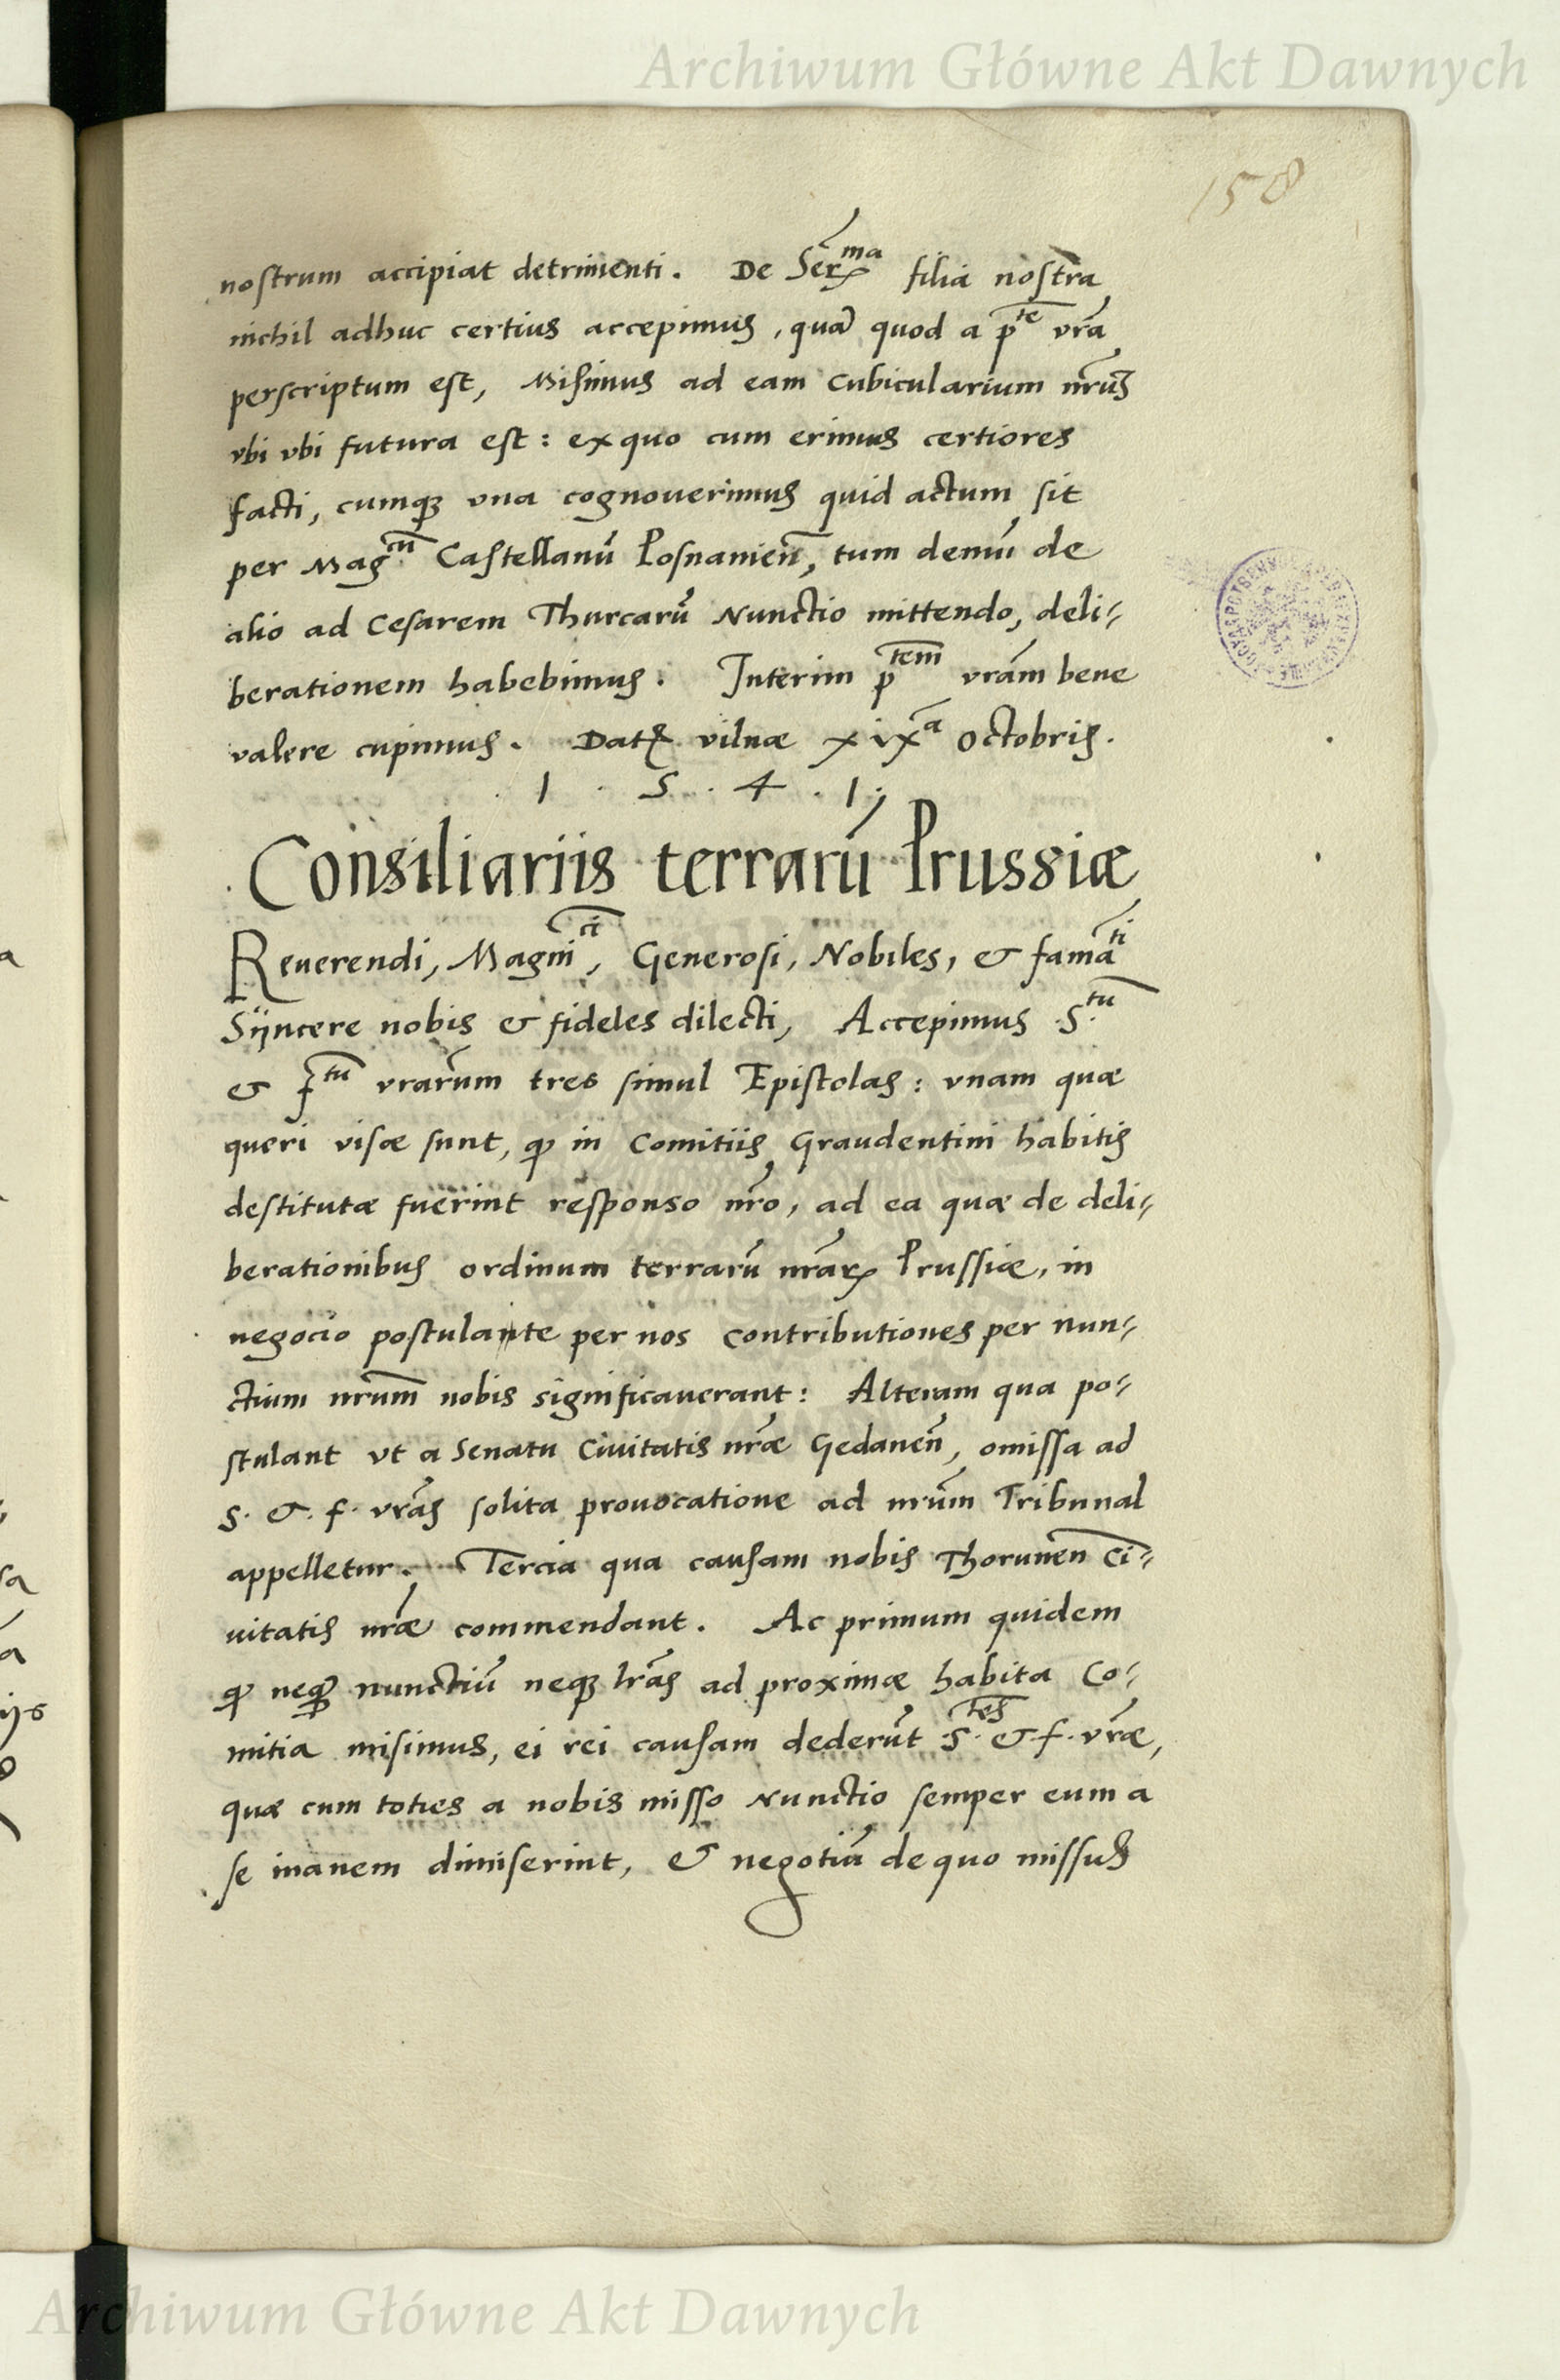 Archiwum Główne Akt Dawnych
158
nostrum accipiat detrimenti. De Ser^ma filia nostra
nichil adhuc certius accepimus, quā quod a p^te vrā
perscriptum est, Misimus ad eam cubicularium nrūs
vbi vbi futura est: ex quo cum erimus certiores
facti, cumqꝫ vna cognouerimus quid actum sit
per Mag^cū Castellanū Posnanieñ, tum demū de
alio ad Cesarem Thurcarū Nunctio mittendo, deli-
berationem habebimus. Interim p^tem vrām bene
valere cupimus. Datꝫ vilnæ xix^a Octobris.
. 1 . 5 . 4 . 1 .
Consiliariis terrarū Prussiæ
Reuerendi, Magni^ci, Generosi, Nobiles, & fama^ti
Sÿncere nobis & fideles dilecti, Accepimus S^tū
& f^tū vrarūm tres simul Epistolas: vnam quæ
queri visæ sunt, qꝫ in Comitiis Graudentini habitis
destitutæ fuerint responso nrō, ad ea quæ de deli-
berationibus ordinum terrarū nrārꝝ Prussiæ, in
negocio postulante per nos contributiones per nun-
ctium nrūm nobis significauerant: Alteram qua po-
stulant vt a Senatu Ciuitatis nrāe Gedaneñ, omissa ad
S. &. f. vrās solita prouocatione ad nrūm Tribunal
appelletur. Tercia qua causam nobis Thoruneñ Ci-
uitatis nrāe commendant. Ac primum quidem
qꝫ neqꝫ nunctiū neqꝫ lrās ad proximæ habita Co-
mitia misimus, ei rei causam dederūt S^tes & f. vrāe,
quæ cum toties a nobis misso Nunctio semper eum a
se inanem dimiserint, & negotiū de quo missus
Archiwum Główne Akt Dawnych